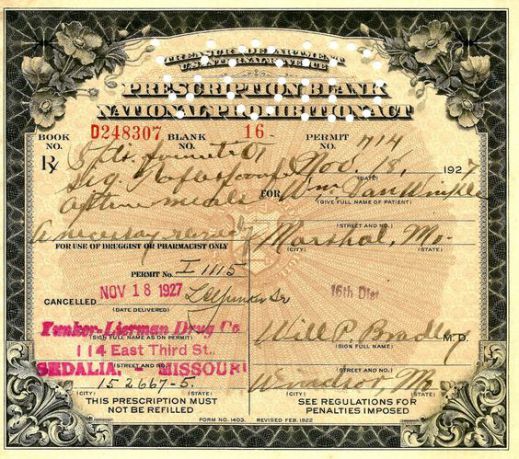 TREASURY DEPARTMENT
U.S. INTERNAL REVENUE SERVICE
PRESCRIPTION BLANK
NATIONAL PROHIBITION ACT
BOOK NO. D248307 BLANK NO. 16- PERMIT NO. 414
Rx Nov 18, 1927
FOR Wm. Van Winkle
after meals
(GIVE FULL NAME OF PATIENT)
(STREET AND NO.)
Marshal, Mo-
FOR USE OF DRUGGIST OR PHARMACIST ONLY (CITY) (STATE)
PERMIT NO. I 1115
CANCELLED NOV 18 1927 16th Dist
(DATE DELIVERED)
Lierman Drug Co Will P. Bradley M.D.
(SIGN FULL NAME AS ON PERMIT) (SIGN FULL NAME)
114 East Third St.
(STREET AND NO.) (STREET AND NO.)
SEDALIA, - MISSOURI
152667-5. Windsor, Mo
(CITY) (STATE) (CITY) (STATE)
THIS PRESCRIPTION MUST SEE REGULATIONS FOR
NOT BE REFILLED PENALTIES IMPOSED
FORM NO. 1403. REVISED FEB. 1922